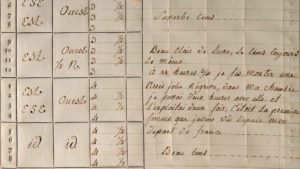 ESE Ouest 3 1/2
Superbe tems
9 3
10 Est Ouest 3 Beau clair de Lune, le tems toujours
11 1/4 N 3 le même.
12 3 à 11 heures 1/2 je fis monter une
Est 4 tres jolie negresse, dans ma chambre
Ouest 4 je passai deux heures avec elle et
ESE 4 l'exploitai deux fois. C'était la premiere
4 femme que j'avois vu depuis mon
5 4 départ de france.
6 id id 4
7 4 Beau tems
8 4